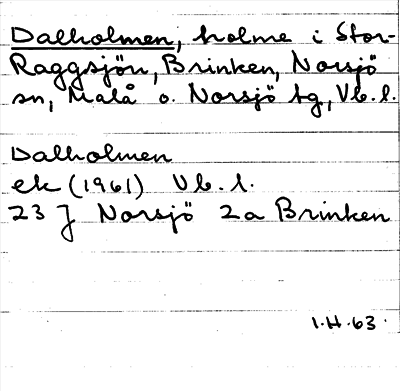 Dalholmen, holme i Stor-
Raggsjön, Brinken, Norsjö
sn, Malå o. Norsjö tg, Vb. l.
Dalholmen
ek (1961) Vb. l.
23 J Norsjö 2a Brinken
1.H.63.